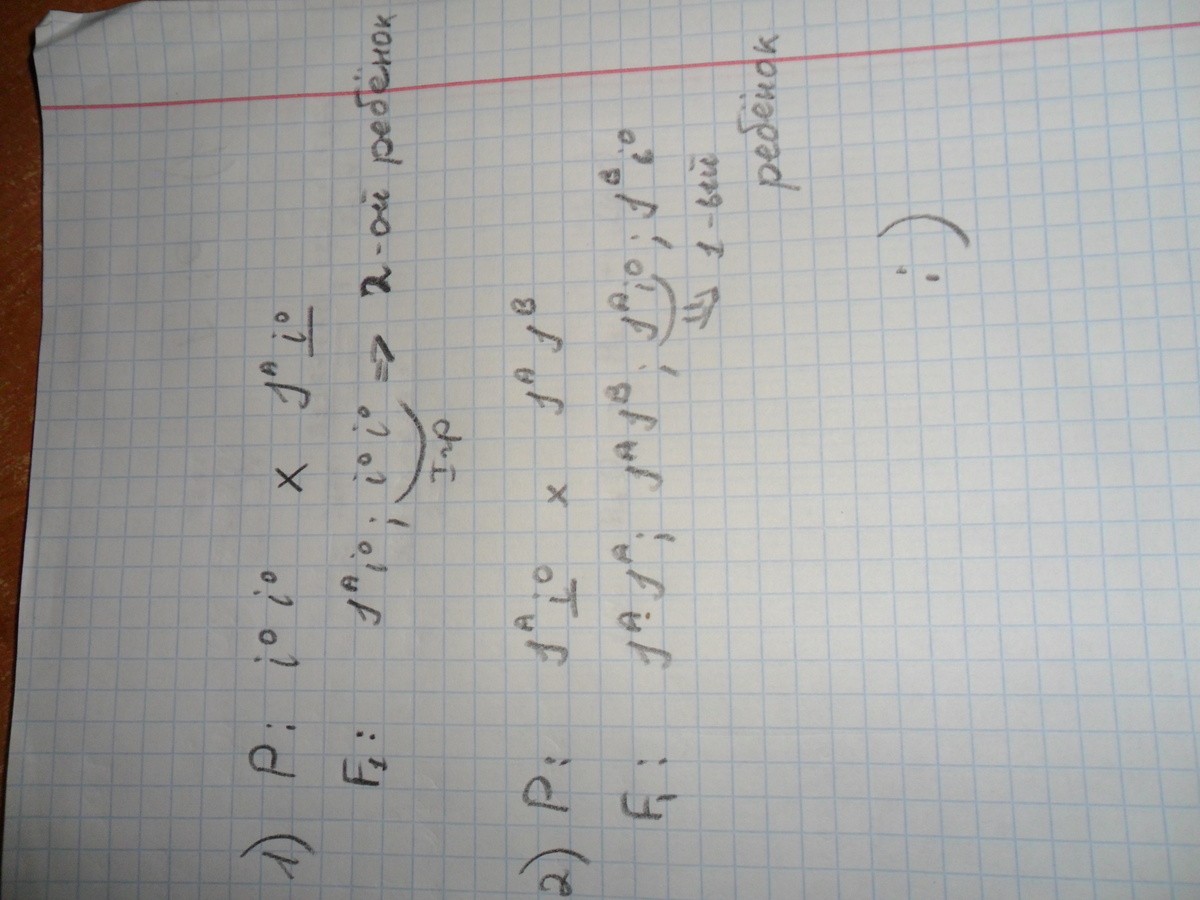 1) P: i⁰ i⁰ x Jᴬ i⁰
F₁: Jᴬ i⁰ ; i⁰ i⁰ => 2-ой ребёнок
I гр
2) P: Jᴬ i⁰ x Jᴬ Jᴮ
F₁: Jᴬ Jᴬ; Jᴬ Jᴮ; Jᴬ i⁰; Jᴮ i⁰
1-ый
ребёнок
:)